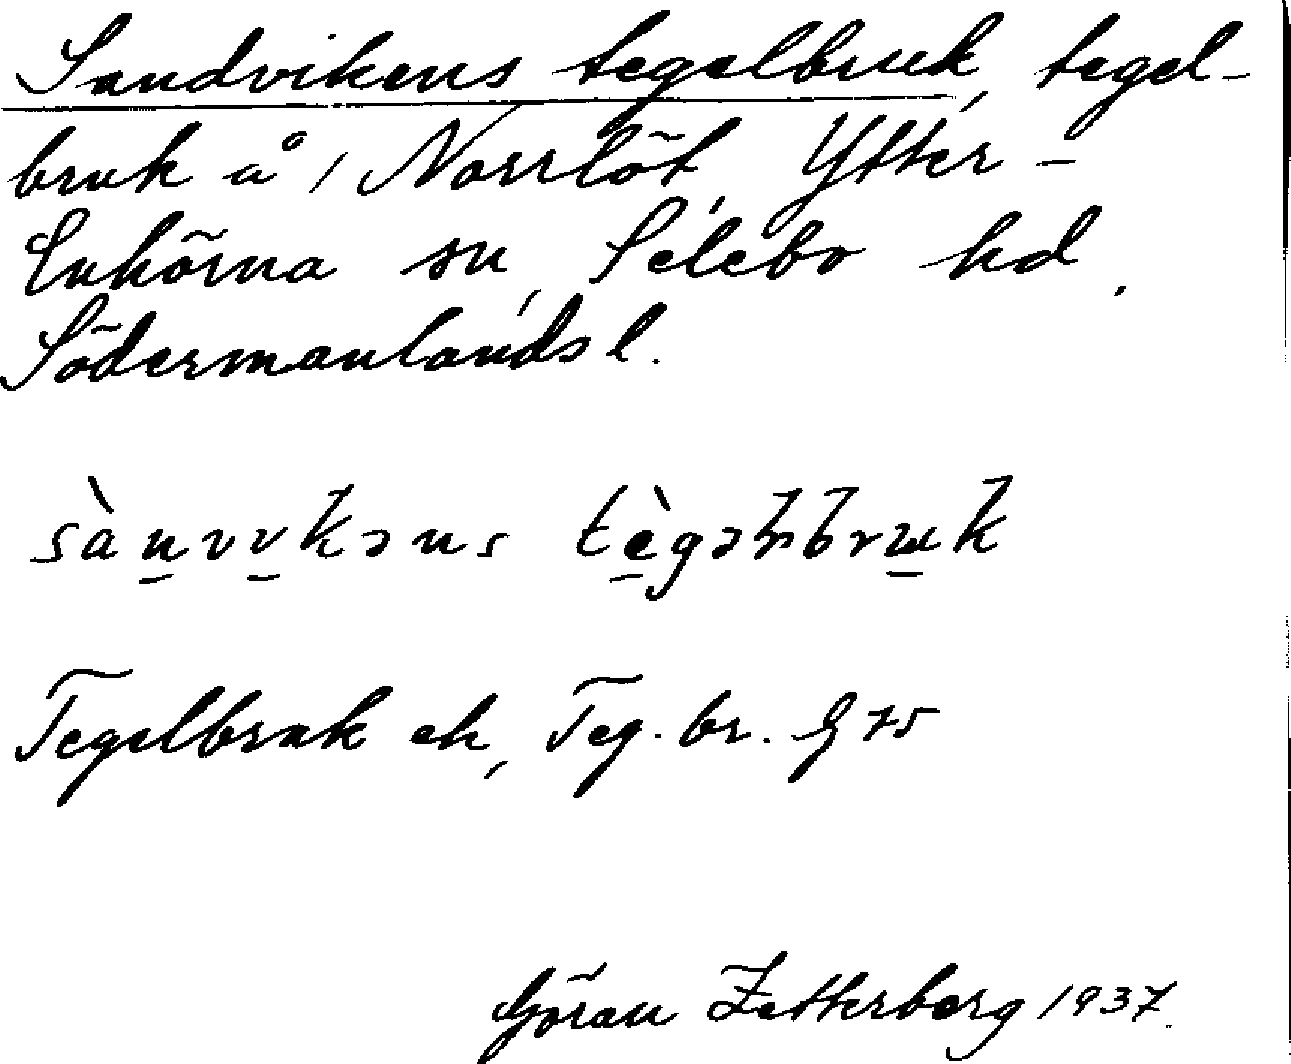 Sandvikens tegelbruk, tegel-
bruk å 1 Norrlöt, Ytter-
Enhörna sn, Selebo hd.
Södermanlands l.
sànvvkəns tègəɫbrɯk
Tegelbruk ek, Teg. br. G 75
Göran Zetterberg 1937.